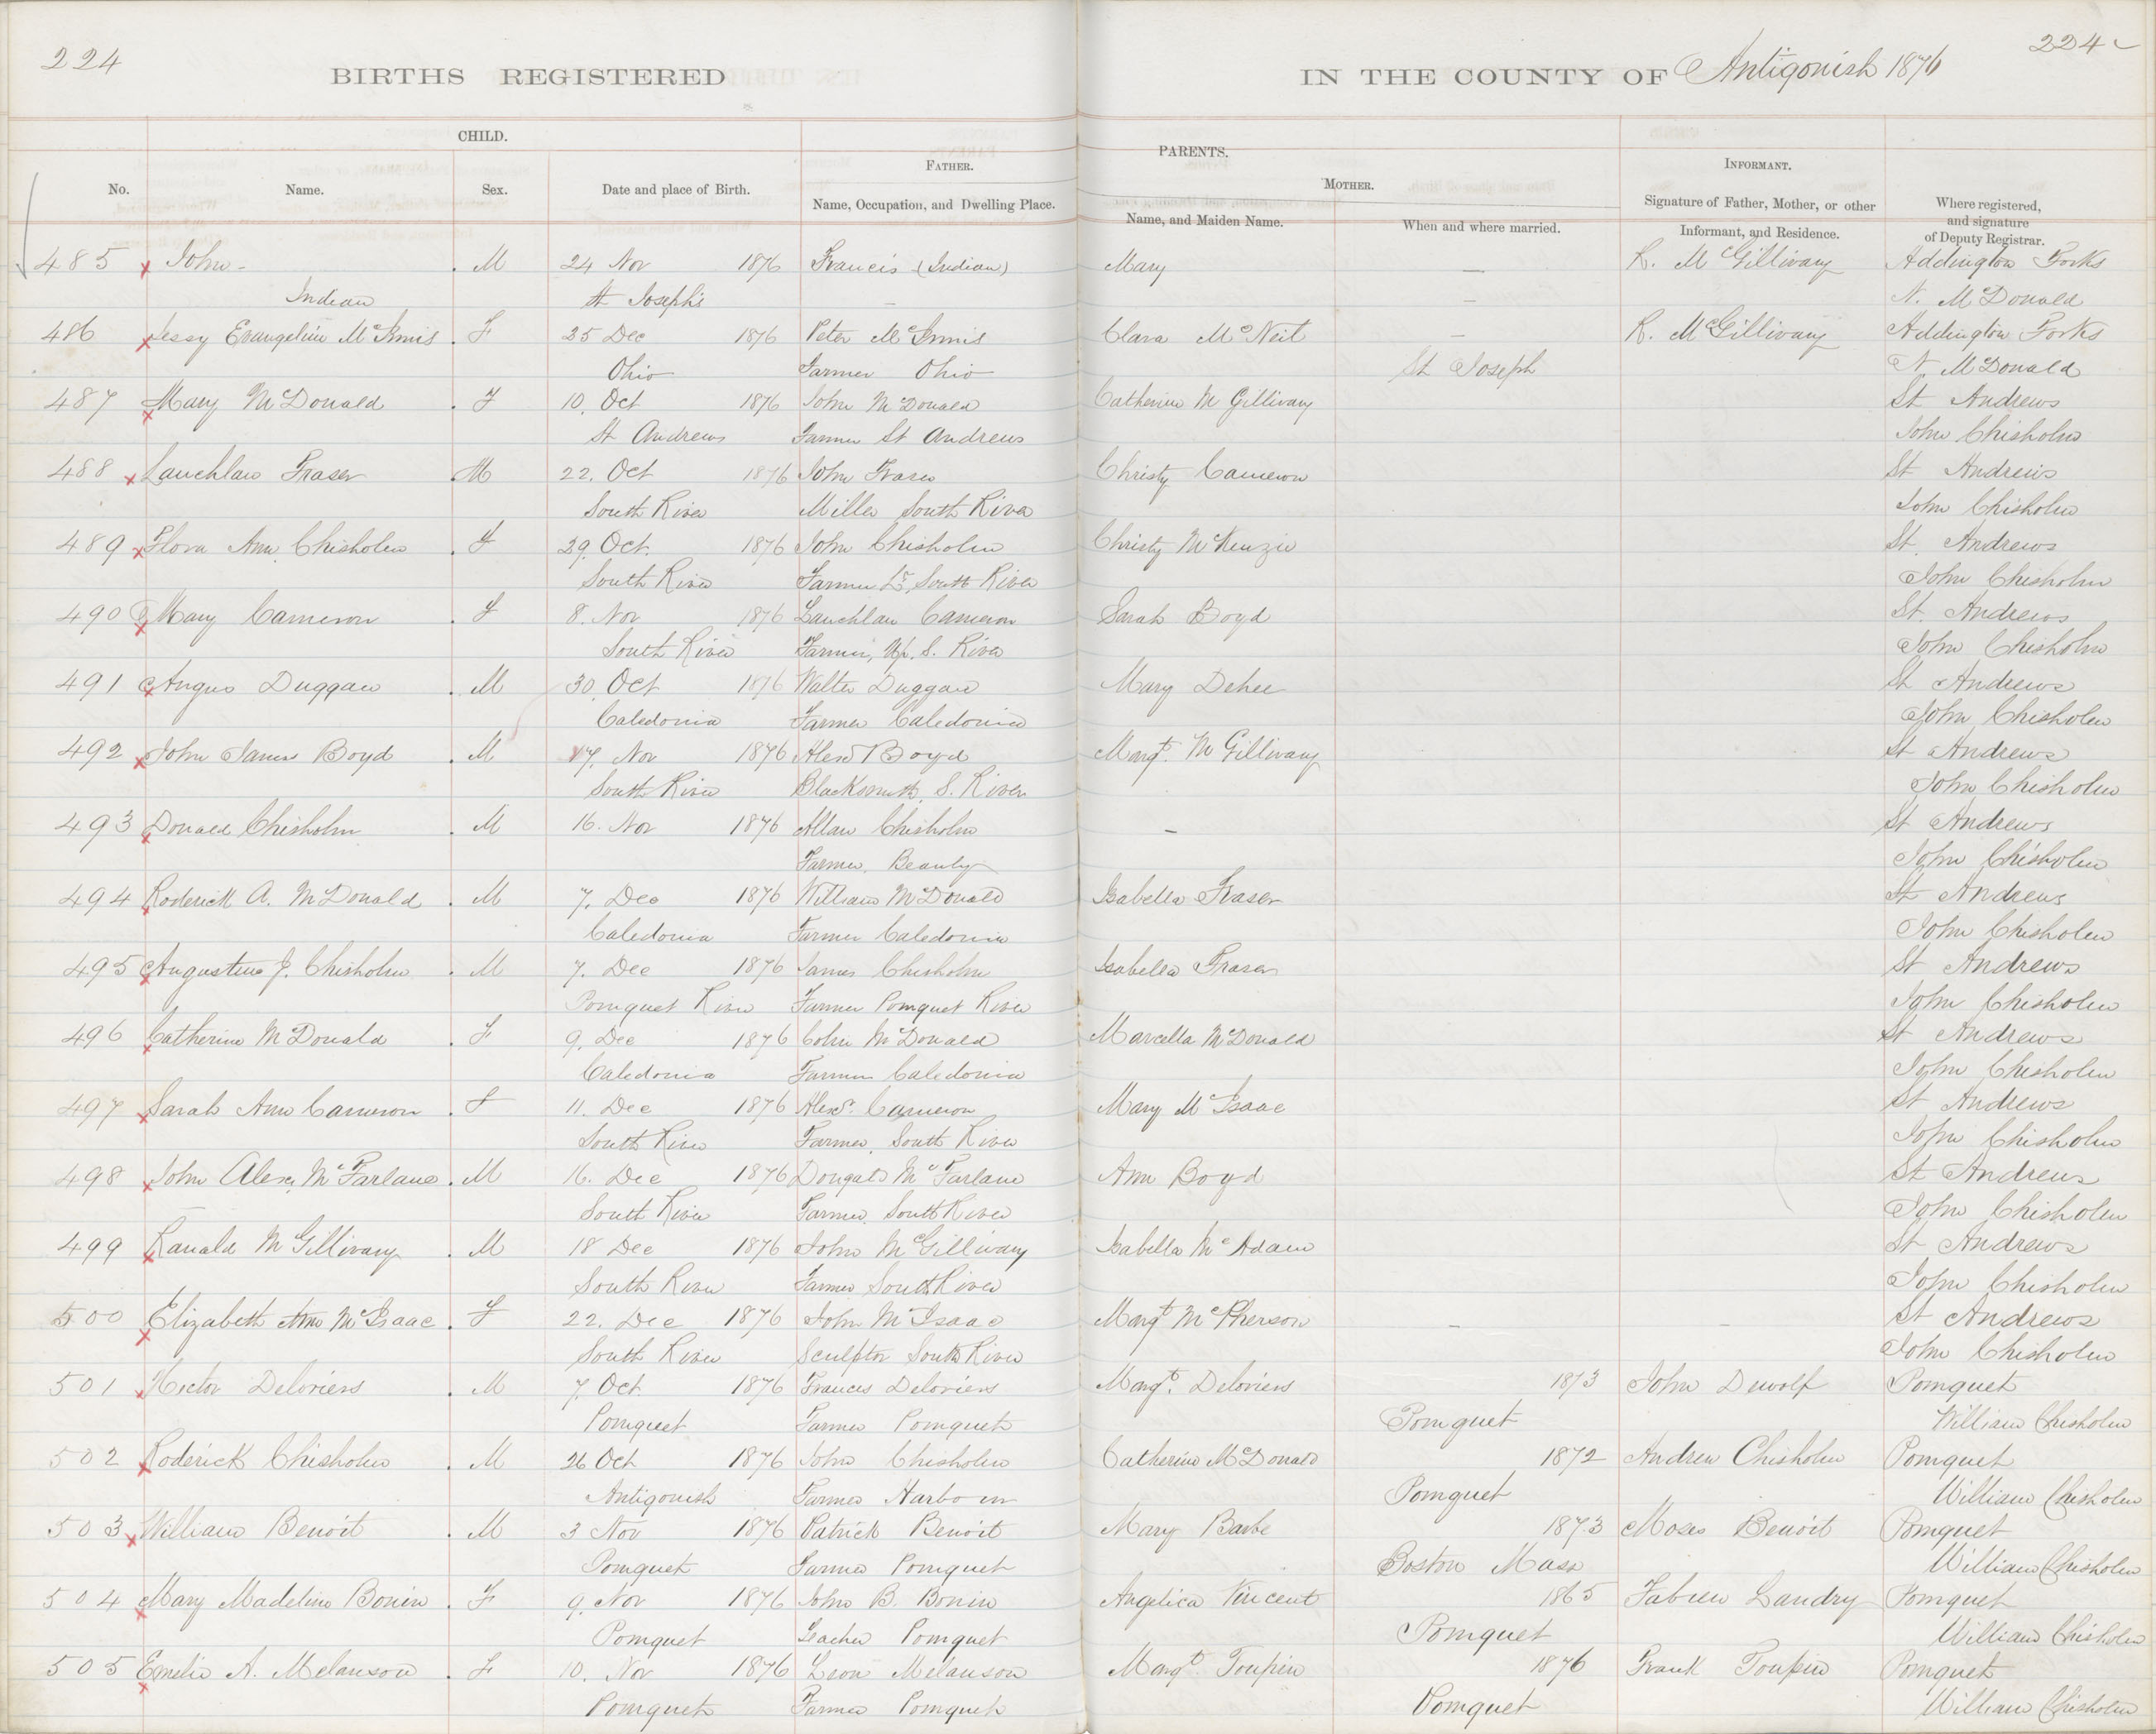 224
224
BIRTHS REGISTERED
IN THE COUNTY OF Antigonish 1876
CHILD.
PARENTS.
No.
Name.
Sex.
Date and place of Birth.
FATHER.
Name, Occupation, and Dwelling Place.
MOTHER.
Name, and Maiden Name.
When and where married.
INFORMANT.
Signature of Father, Mother, or other Informant, and Residence.
Where registered, and signature of Deputy Registrar.
485 x John - . M 24 Nov 1876 Francis (Indian) Mary — R. McGillivray Addington Forks
Indian St Josephs – – N. McDonald
486 x Jessy Evangeline McInnis . F 25 Dec 1876 Peter McInnis Clara McNeil – R. McGillivray Addington Forks
Ohio Farmer Ohio St Joseph N. McDonald
487 x Mary McDonald . F 10. Oct 1876 John McDonald Catherine McGillivray St Andrews
St Andrews Farmer St Andrews John Chisholm
488 x Lauchlan Fraser . M 22. Oct 1876 John Fraser Christy Cameron St Andrews
South River Miller South River John Chisholm
489 x Flora Ann Chisholm . F 29. Oct. 1876 John Chisholm Christy McKenzie St. Andrews
South River Farmer Lr. South River John Chisholm
490 x Mary Cameron . F 8. Nov 1876 Lauchlan Cameron Sarah Boyd St. Andrews
South River Farmer, Up. S. River John Chisholm
491 x Angus Duggan . M 30. Oct 1876 Walter Duggan Mary Dehee St Andrews
Caledonia Farmer Caledonia John Chisholm
492 x John James Boyd . M 17. Nov 1876 Alexr Boyd Margt. McGillivray St Andrews
South River Blacksmith, S. River John Chisholm
493 x Donald Chisholm . M 16. Nov 1876 Allan Chisholm – St Andrews
Farmer, Beauly John Chisholm
494 x Roderick A. McDonald . M 7. Dec 1876 William McDonald Isabella Fraser St Andrews
Caledonia Farmer Caledonia John Chisholm
495 x Augustine J. Chisholm . M 7. Dec 1876 James Chisholm Isabella Fraser St Andrews
Pomquet River Farmer Pomquet River John Chisholm
496 x Catherine McDonald . F 9. Dec 1876 Colin McDonald Marcella McDonald St Andrews
Caledonia Farmer Caledonia John Chisholm
497 x Sarah Ann Cameron . F 11. Dec 1876 Alexr. Cameron Mary McIsaac St Andrews
South River Farmer, South River John Chisholm
498 x John Alexr McFarlane . M 16. Dec 1876 Dougald McFarlane Ann Boyd St Andrews
South River Farmer, South River John Chisholm
499 x Ranald McGillivray . M 18 Dec 1876 John McGillivray Isabella McAdam St Andrews
South River Farmer South River John Chisholm
500 x Elizabeth Ann McIsaac . F 22. Dec 1876 John McIsaac Margt McPherson – – St Andrews
South River Sculptor South River John Chisholm
501 x Hector Deloriers . M 7. Oct 1876 Frances Deloriers Margt. Deloriers 1873 John Dewolf Pomquet
Pomquet Farmer Pomquet Pomquet William Chisholm
502 x Roderick Chisholm . M 26 Oct 1876 John Chisholm Catherine McDonald 1872 Andrew Chisholm Pomquet
Antigonish Farmer Harbour Pomquet William Chisholm
503 x William Benoit . M 3 Nov 1876 Patrick Benoit Mary Barbe 1873 Moses Benoit Pomquet
Pomquet Farmer Pomquet Boston Mass William Chisholm
504 x Mary Madeline Bonin . F 9. Nov 1876 John B. Bonin Angelica Vincent 1865 Fabien Landry Pomquet
Pomquet Teacher Pomquet Pomquet William Chisholm
505 x Emelie A. Melanson . F 10. Nov 1876 Leon Melanson Margt Toupin 1876 Frank Toupin Pomquet
Pomquet Farmer Pomquet Pomquet William Chisholm